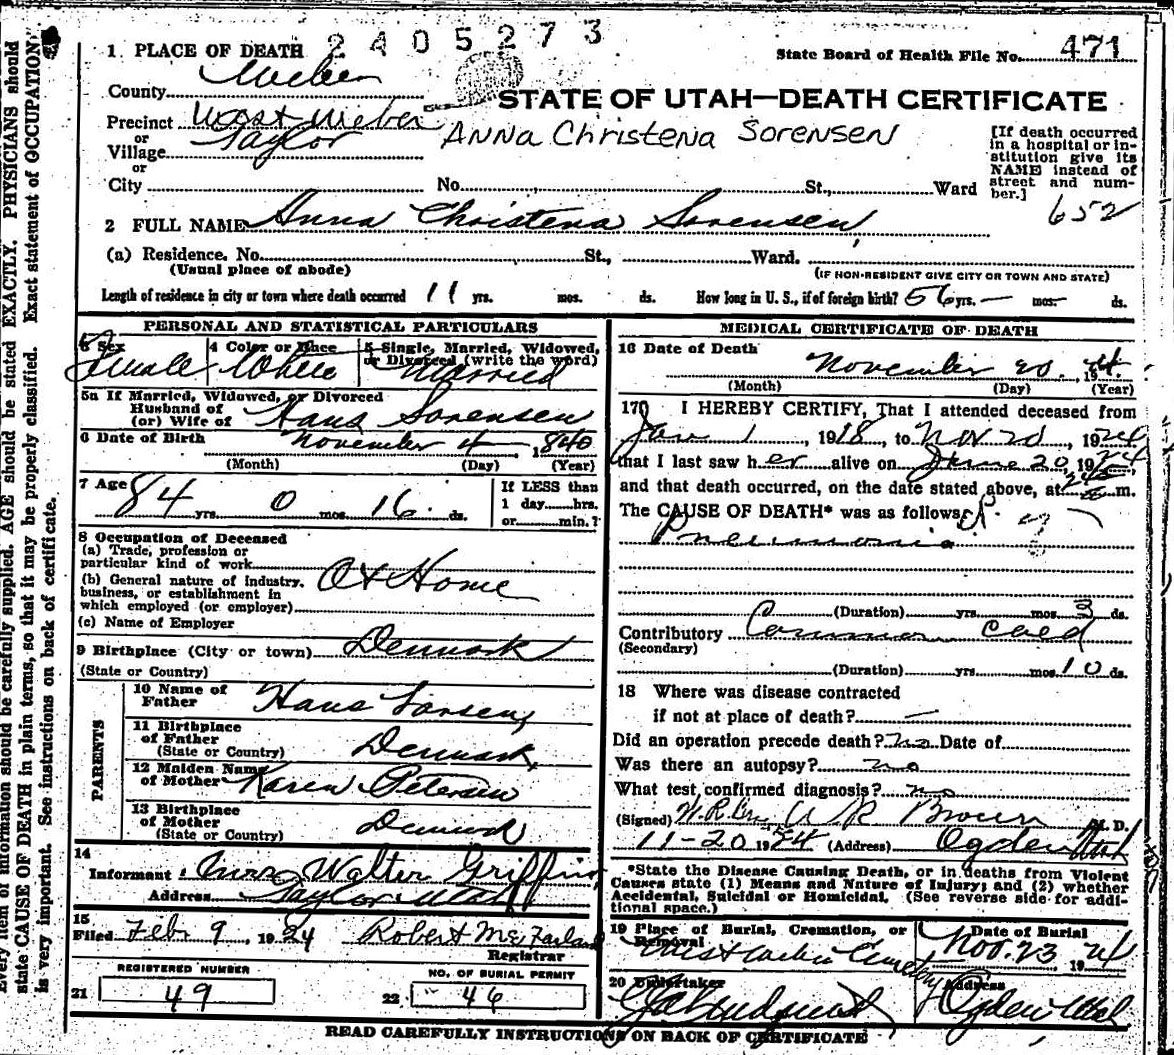 2405273
1 PLACE OF DEATH
State Board of Health File No. 471
County Weber
STATE OF UTAH—DEATH CERTIFICATE
Precinct West Weber
or
Village Taylor
Anna Christena Sorensen
[If death occurred in a hospital or in-
stitution give its NAME instead of street and num-
ber.]
or
City No. St., Ward
652
2 FULL NAME Anna Christena Sorensen
(a) Residence. No. St., Ward.
(Usual place of abode)
(IF NON-RESIDENT GIVE CITY OR TOWN AND STATE)
Length of residence in city or town where death occurred 11 yrs. mos. ds. How long in U. S., if of foreign birth? 56 yrs. — mos. ds.
PERSONAL AND STATISTICAL PARTICULARS
3 Sex Female
4 Color or Race White
5 Single, Married, Widowed, or Divorced (write the word) Married
5a If Married, Widowed, or Divorced
Husband of
(or) Wife of Hans Sorensen
6 Date of Birth November 4, 1840
(Month) (Day) (Year)
7 Age 84 yrs. 0 mos. 16 ds.
If LESS than
1 day hrs.
or min.?
8 Occupation of Deceased
(a) Trade, profession or
particular kind of work
(b) General nature of industry,
business, or establishment in
which employed (or employer)
At Home
(c) Name of Employer
9 Birthplace (City or town) Denmark
(State or Country)
PARENTS
10 Name of Father Hans Larsen
11 Birthplace of Father
(State or Country) Denmark
12 Maiden Name of Mother Karen Petersen
13 Birthplace of Mother
(State or Country) Denmark
14
Informant Mrs Walter Griffin
Address Taylor Utah
15
Filed Feb 9, 1924 Robert McFarland
Registrar
REGISTERED NUMBER
21 49
NO. OF BURIAL PERMIT
22 46
MEDICAL CERTIFICATE OF DEATH
16 Date of Death November 20, 1924
(Month) (Day) (Year)
17 I HEREBY CERTIFY, That I attended deceased from
Jan 1, 1918, to Nov 20, 1924
that I last saw her alive on June 20, 1924,
and that death occurred, on the date stated above, at m.
The CAUSE OF DEATH* was as follows:
Pneumonia
(Duration) yrs. mos. 3 ds.
Contributory Common cold
(Secondary)
(Duration) yrs. mos. 10 ds.
18 Where was disease contracted
if not at place of death? —
Did an operation precede death? no Date of
Was there an autopsy? no
What test confirmed diagnosis? no
(Signed) W R Brown M. D.
11-20 1924 (Address) Ogden Utah
*State the Disease Causing Death, or in deaths from Violent
Causes state (1) Means and Nature of Injury; and (2) whether
Accidental, Suicidal or Homicidal. (See reverse side for addi-
tional space.)
19 Place of Burial, Cremation, or Removal
West Weber Cemetery
Date of Burial
Nov. 23 1924
20 Undertaker
Address
Ogden Utah
READ CAREFULLY INSTRUCTIONS ON BACK OF CERTIFICATE
Every item of information should be carefully supplied. AGE should be stated EXACTLY. PHYSICIANS should
state CAUSE OF DEATH in plain terms, so that it may be properly classified. Exact statement of OCCUPATION
is very important. See instructions on back of certificate.